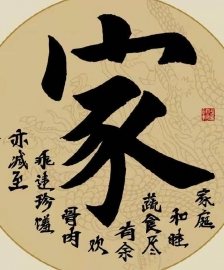 家
家庭
和睦
蔬食尽
有余
欢
骨肉
乖违珍馐
亦减至